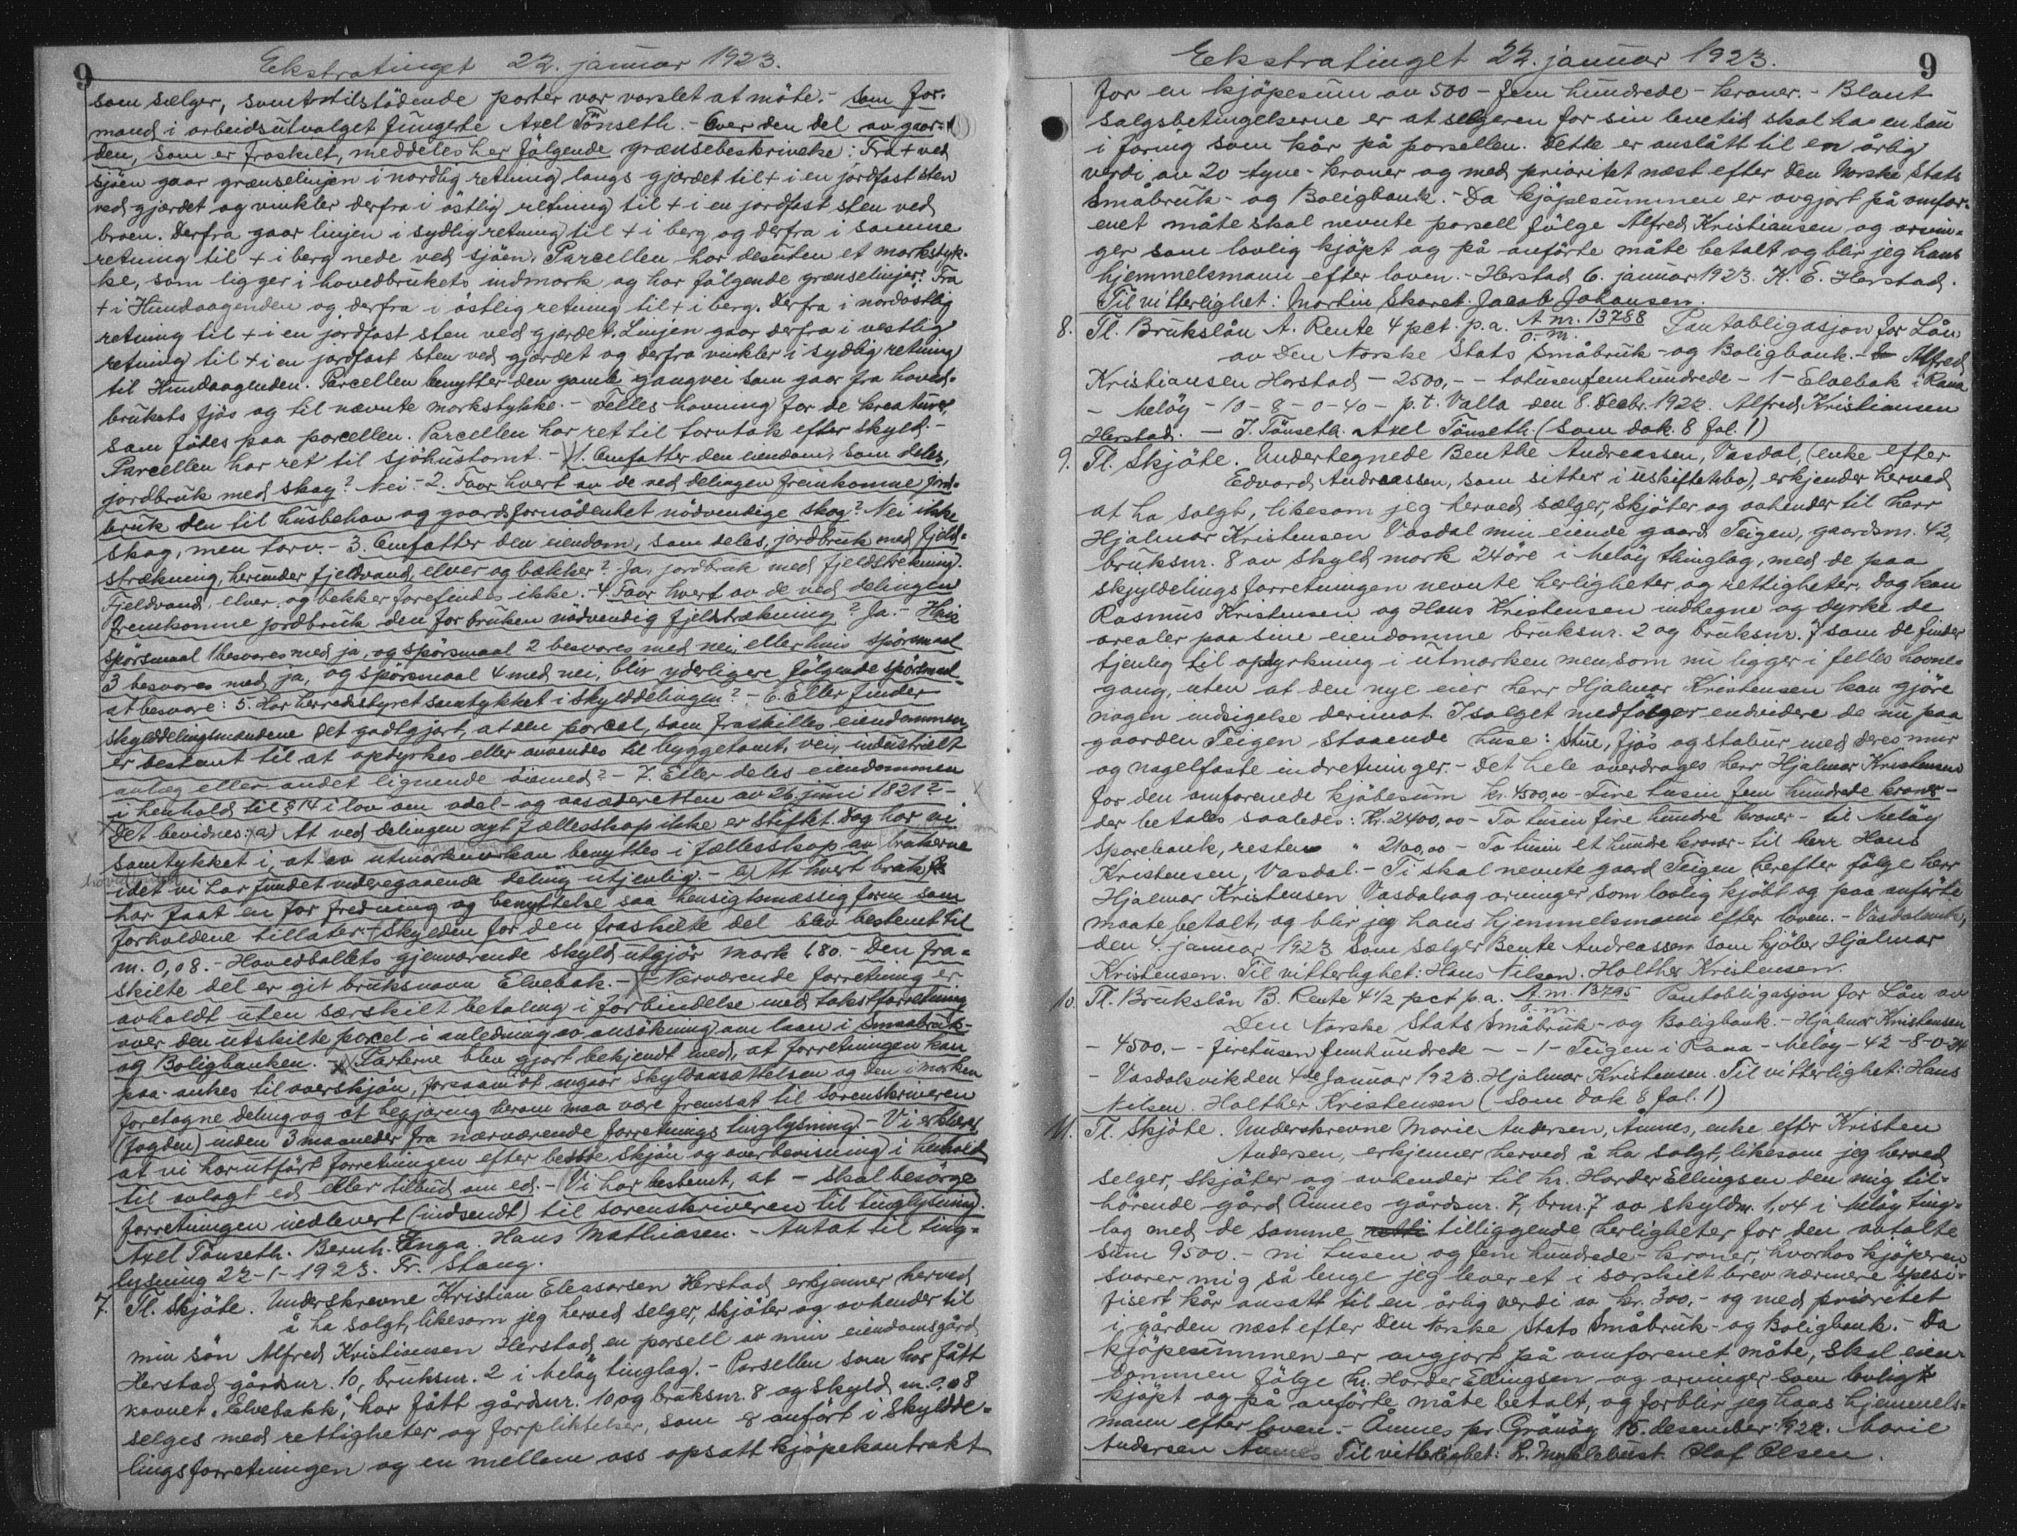 Ekstratinget 22. januar 1923.
9
som sælger, samt tilstödende parter var varslet at möte. - Som for-
mand i arbeidsutvalget fungerte Axel Tönseth. - Over den del av gaar-
den, som er fraskilt, meddeles her følgende grænsebeskrivelse: Fra + ved
sjöen gaar grænselinjen i nordlig retning langs gjærdet til + i en jordfast sten
ved gjærdet og vinkler derfra i östlig retning til + i en jordfast sten ved
broen. Derfra gaar linjen i sydlig retning til + i berg og derfra i samme
retning til + i berg nede ved sjöen. Parcellen har desuten et markstyk-
ke, som ligger i hovedbrukets indmark og har fölgende grænselinjer: Fra
+ i Hundaagenden og derfra i östlig retning til + i berg. Derfra i nordostlig
retning til + i en jordfast sten ved gjærdet. Linjen gaar derfra i vestlig
retning til + i en jordfast sten ved gjærdet og derfra vinkler i sydlig retning
til Hundaagenden. Parcellen benytter den gamle gangvei som gaar fra hoved-
brukets fjös og til nævnte markstykke. - Felles havning for de kreaturer,
som födes paa parcellen. Parcellen har ret til torvtak efter skyld. -
Parcellen har ret til sjöhustomt. - 1. Omfatter den eiendom, som deles,
jordbruk med skog? Nei. - 2. Faar hvert av de ved delingen fremkomne jord-
bruk den til husbehov og gaardsfornödenhet nödvendige skog? Nei ikke
skog, men torv. - 3. Omfatter den eiendom, som deles, jordbruk med fjeld-
strækning, herunder fjeldvand, elver og bækker? Ja, jordbruk med fjeldstrekning.
Fjeldvand, elver og bekker forefindes ikke. - 4. Faar hvert av de ved delingen
fremkomne jordbruk den for bruken nödvendig fjelstrækning? Ja. - Hvis
spörsmaal 1 besvares med ja, og spörsmaal 2 besvares med nei, eller hvis spörsmaal
3 besvares med ja, og spörsmaal 4 med nei, blir yderligere fölgende spörsmaal
at besvare: 5. Har herredsstyret samtykket i skylddelingen? - 6. Eller finder
skylddelingsmændene det godtgjort, at den parcel, som fraskilles eiendommen,
er bestemt til at opdyrkes eller anvendes til byggetomt, vei, industrielt
anlæg eller andet lignende öiemed? - 7. Eller deles eiendommen
i henhold til § 14 i lov om odel- og aasæderetten av 26 juni 1821? -
Det bevidnes: a) At ved delingen nyt fællesskap ikke er stiftet dog har vi
samtykket i, at utmarken kan benyttes i fællesskap av brukerne
idet vi har fundet videregaaende deling utjenlig. - b) At hvert bruk
har faat en for fredning og benyttelse saa hensigtsmæssig form som
forholdene tillater. - Skylden for den fraskilte del blev bestemt til
m. 0,08. - Hovedböllets gjenværende skyld utgjör mark 1,80. - Den fra-
skilte del er git bruksnavn Elvebak. - Nærværende forretning er
avholdt uten særskilt betaling i forbindelse med takstforretning
over den utskilte parcel i anledning av ansökning om laan i Smaabruk-
og Boligbanken. - Parterne blev gjort bekjendt med, at forretningen kan
paa-ankes til overskjön, forsaavidt angaar skyldansættelsen og den i marken
foretagne deling, og at begjæring herom maa være fremsat til sorenskriveren
(fogden) inden 3 maaneder fra nærværende forretnings tinglysning. - Vi erklærer
at vi har utfört forretningen efter bedste skjön og overbevisning i henhold
til avlagt ed eller tilbud om ed. - Vi har bestemt, at - skal besörge
forretningen indlevert (indsendt) til sorenskriveren til tinglysning.
Axel Tönseth. Bernh. Enga. Hans Mathiasen. - Antat til ting-
lysning 22-1-1923. Fr. Stang.
7. Tl. Skjöte. Underskrevne Kristian Eleasarsen Herstad erkjenner herved
å ha solgt, likesom jeg herved selger, skjöter og avhender til
min sön Alfred Kristiansen Herstad en parsell av min eiendomsgård
Herstad gårdsnr. 10, bruksnr. 2 i Melöy tinglag. - Parsellen som har fått
navnet "Elvebakk", har fått gårdsnr. 10 og bruksnr. 8 og skyld m. 0,08
selges med rettigheter og forpliktelser, som er anfört i skylddel-
ingsforretningen og en mellem oss opsatt kjöpekontrakt
Ekstratinget 22. januar 1923.
9
for en kjöpesum av 500 - fem hundrede - kroner. - Blant
salgsbetingelserne er at selgeren for sin levetid skal ha en sau
i foring som kår på parsellen. Dette er anslått til en årlig
verdi av 20 - tyve - kroner og med prioritet næst efter Den Norske Stats
Småbruk- og Boligbank. - Da kjöpesummen er avgjort på omfor-
enet måte skal nevnte parsell fölge Alfred Kristiansen og arvin-
ger som lovlig kjöpt og på anförte måte betalt og blir jeg hans
hjemmelsmann efter loven. - Herstad 6. januar 1923. K. E. Herstad.
Til vitterlighet: Martin Skaret. Jacob Johansen.
8. Tl. Brukslån A. Rente 4 pct. p.a. A. nr. 13788 o.m. Pantobligasjon for Lån
av Den Norske Stats Småbruk- og Boligbank. - Alfred
Kristiansen Herstad - 2500,- - totusenfemhundrede - 1 - Elvebak i Rana
- Melöy - 10 - 8 - 0 - 40 - p.t. Valla den 8. Decbr. 1922. Alfred Kristiansen
Herstad. - J. Tönseth. Axel Tönseth. (Som dok. 8 fol. 1)
9. Tl. Skjöte. Undertegnede Benthe Andreassen, Vasdal, (enke efter
Edvard Andreassen, som sitter i uskiftet bo), erkjender herved
at ha solgt, likesom jeg herved sælger, skjöter og avhender til Herr
Hjalmar Kristensen Vasdal min eiende gaard Teigen, gaardsnr. 42,
bruksnr. 8 av skyld mark 24 öre i Melöy thinglag, med de paa
skjyldelingsforretningen nevnte herligheter og rettigheter. Dog kan
Rasmus Kristensen og Hans Kristensen indhegne og dyrke de
arealer paa sine eiendomme bruksnr. 2 og bruksnr. 7 som de finder
tjenlig til opdyrkning i utmarken men som nu ligger i felles havne-
gang, uten at den nye eier herr Hjalmar Kristensen kan gjöre
nogen indsigelse derimot. I salget medfolger endvidere de nu paa
gaarden Teigen staaende huse: Stue, fjös og stabur med deres mur
og nagelfaste indretninger. - Det hele overdrages herr Hjalmar Kristensen
for den omforenede kjöbesum kr. 4500,00 - Fire tusin fem hundrede kroner -
der betales saaledes: Kr. 2400,00 - To tusin fire hundre kroner - til Melöy
Sparebank, resten " 2100,00 - To tusin et hundre kroner - til herr Hans
Kristensen, Vasdal. - Ti skal nevnte gaard Teigen herefter fölge herr
Hjalmar Kristensen Vasdal og arvinger som lovlig kjöbt og paa anförte
maate betalt, og blir jeg hans hjemmelsmann efter loven. - Vasdalsvik,
den 4. januar 1923 Som sælger Bente Andreassen Som kjöber Hjalmar
Kristensen. Til vitterlighet: Hans Nilsen. Holther Kristensen.
10. Tl. Brukslån B. Rente 4 1/2 pct p.a. A. nr. 13795 o.m. Pantobligasjon for Lån av
Den Norske Stats Småbruk- og Boligbank. - Hjalmar Kristensen
- 4500,- - firetusen femhundrede - - 1 - Teigen i Rana - Melöy - 42 - 8 - 0 - 24
- Vasdalsvik den 4de Januar 1923. Hjalmar Kristensen. Til vitterlighet: Hans
Nilsen. Holther Kristensen (Som dok 8 fol. 1)
11. Tl. Skjöte. Underskrevne Marie Andersen, Åmnes, enke eftr Kristen
Andersen, erkjenner herved å ha solgt, likesom jeg herved
selger, skjöter og avhender til hr. Hardar Ellingsen den mig til-
hörende gård Åmnes gårdsnr. 7, brnr. 7 av skyldm. 1,04 i Melöy ting-
lag med de samme tilliggende herligheter for den avtalte
sum 9500.- ni tusen og fem hundrede - kroner, hvorhos kjöperen
svarer mig så lenge jeg lever et i særskilt brev nærmere spesi-
fisert kår ansatt til en årlig verdi av kr. 300,- og med prioritet
i gården næst efter Den Norske Stats Småbruk- og Boligbank. - Da
kjöpesummen er avgjort på omforenet måte, skal eien-
dommen fölge hr. Hardar Ellingsen og arvinger som lovligt
kjöpt og på anförte måte betalt, og forblir jeg hans hjemmels-
mann efter loven. - Åmnes pr. Grönöy 15. desember 1922. Marie
Andersen Åmnes Til vitterlighet: L. Myklebust. Olaf Olsen.